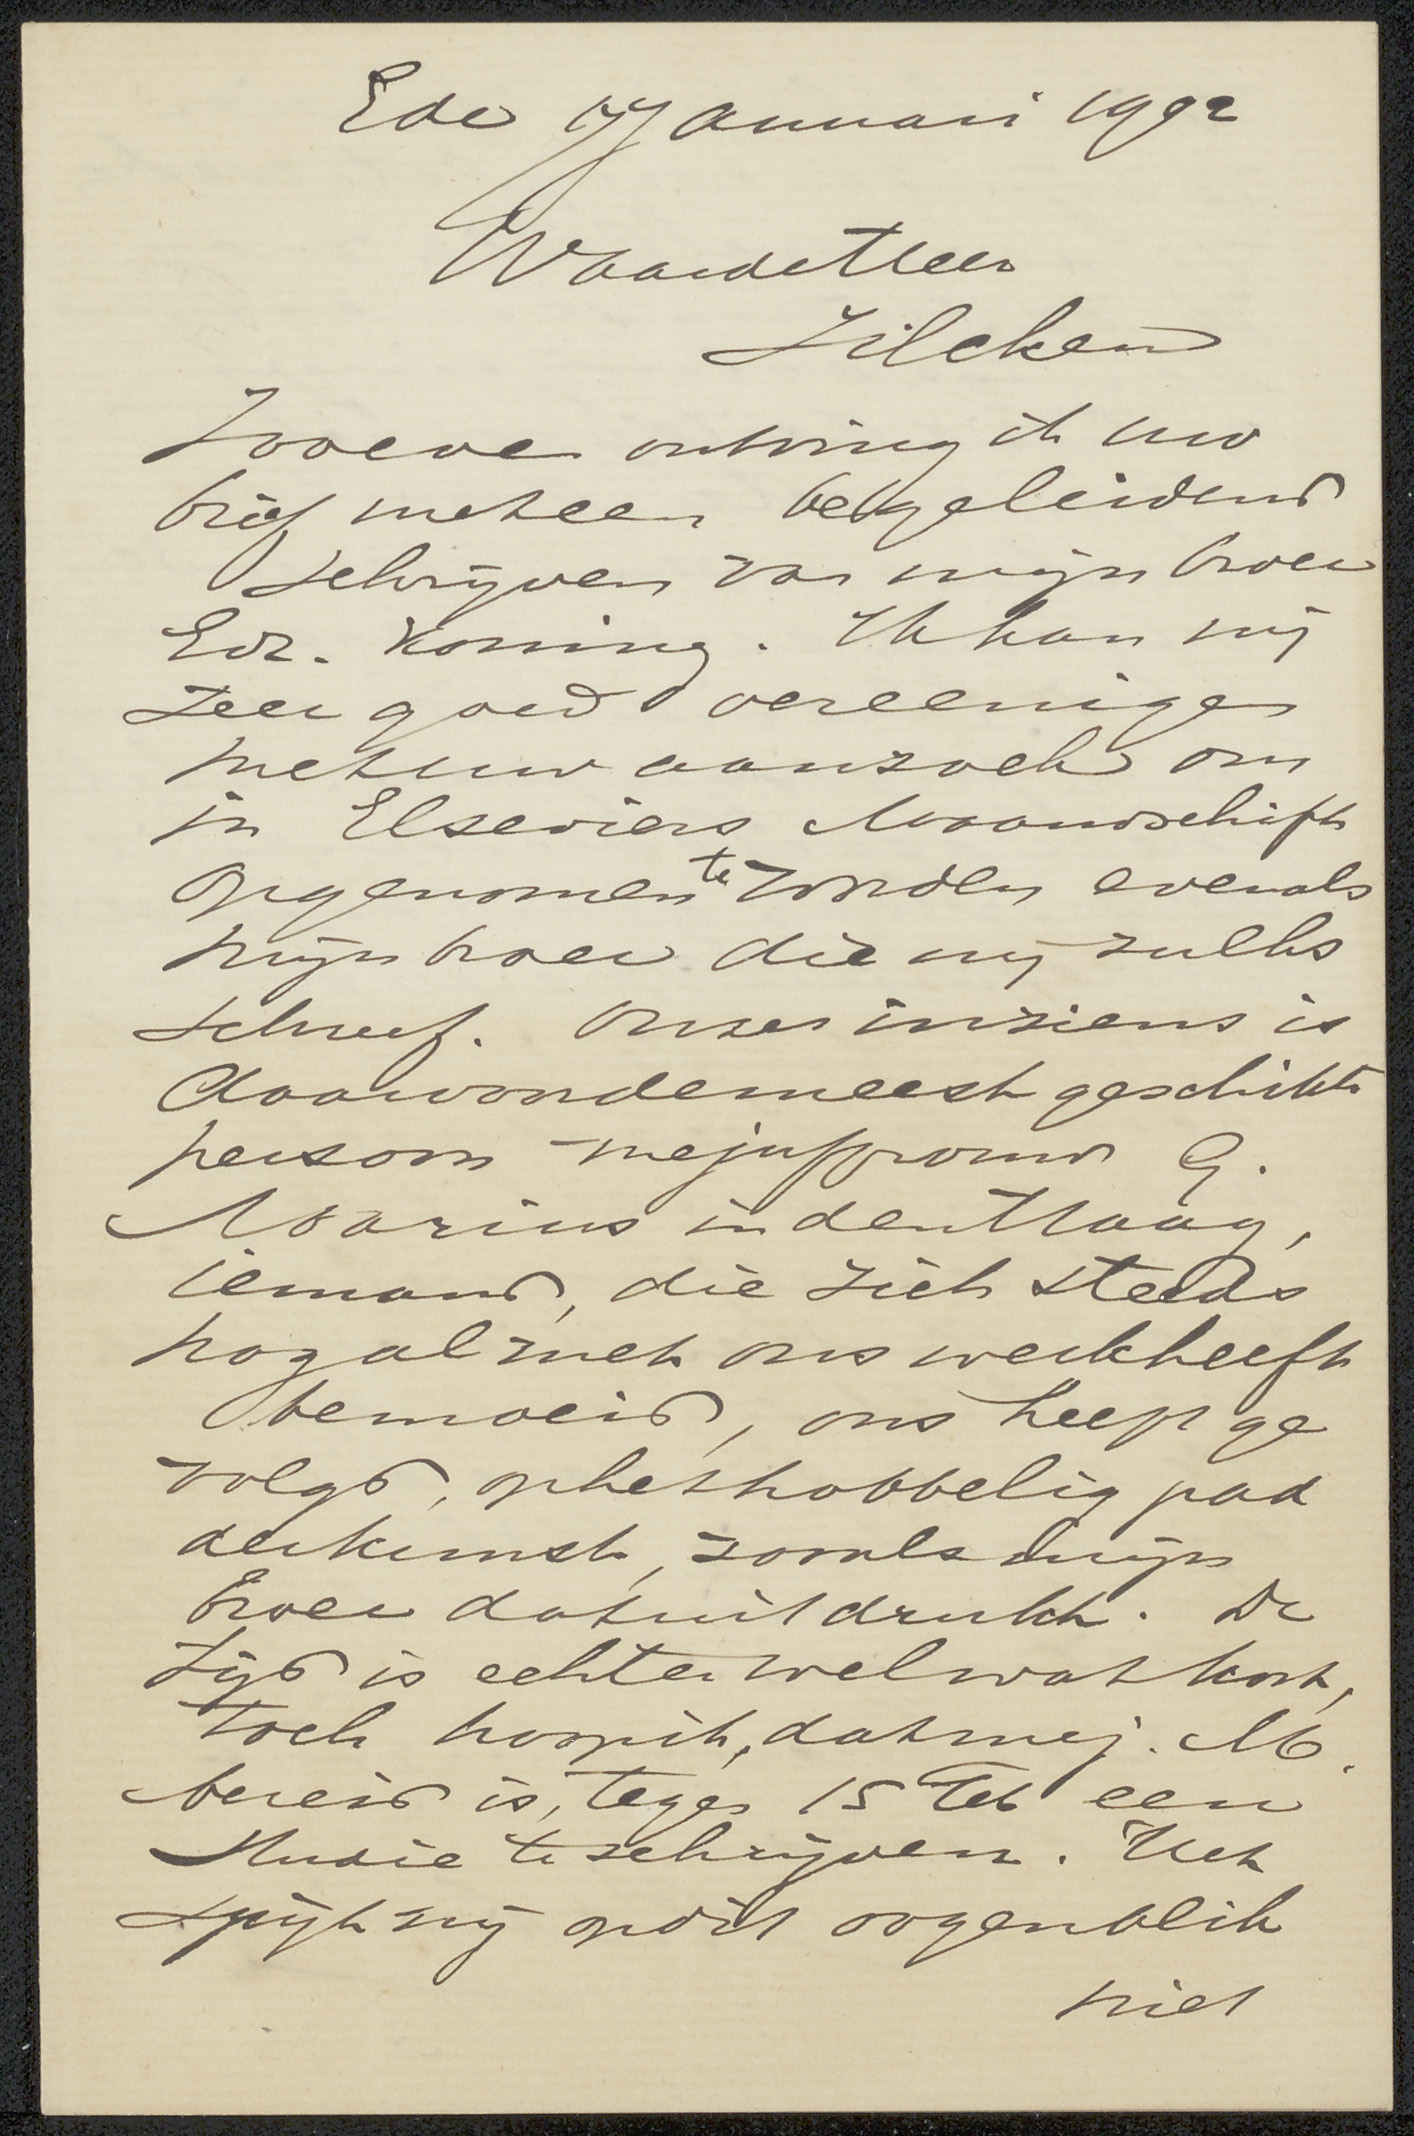 Ede 17 Januari 1902
Waarde Heer
Zilcken
Zooeven ontving ik uw
brief met een begeleidend
schrijven van mijn broer
Edz. Koning. Ik kan mij
zeer goed vereenigen
met uw aanzoek om
in Elseviers Maandschrift
opgenomen te worden evenals
mijn broer die mij zulks
schreef. Onzes inziens is
daarvoor de meest geschikte
persoon mejuffrouw G.
Marius in den Haag,
iemand, die zich steeds
nog al met ons werk heeft
bemoeid, ons heeft ge
volgd, op het hobbelig pad
der kunst, zooals mijn
broer dat uitdrukt. De
tijd is echter wel wat kort,
toch hoop ik, dat mej. M.
bereid is, tegen 15 Feb een
studie te schrijven. Het
spijt mij op dit oogenblik
niet